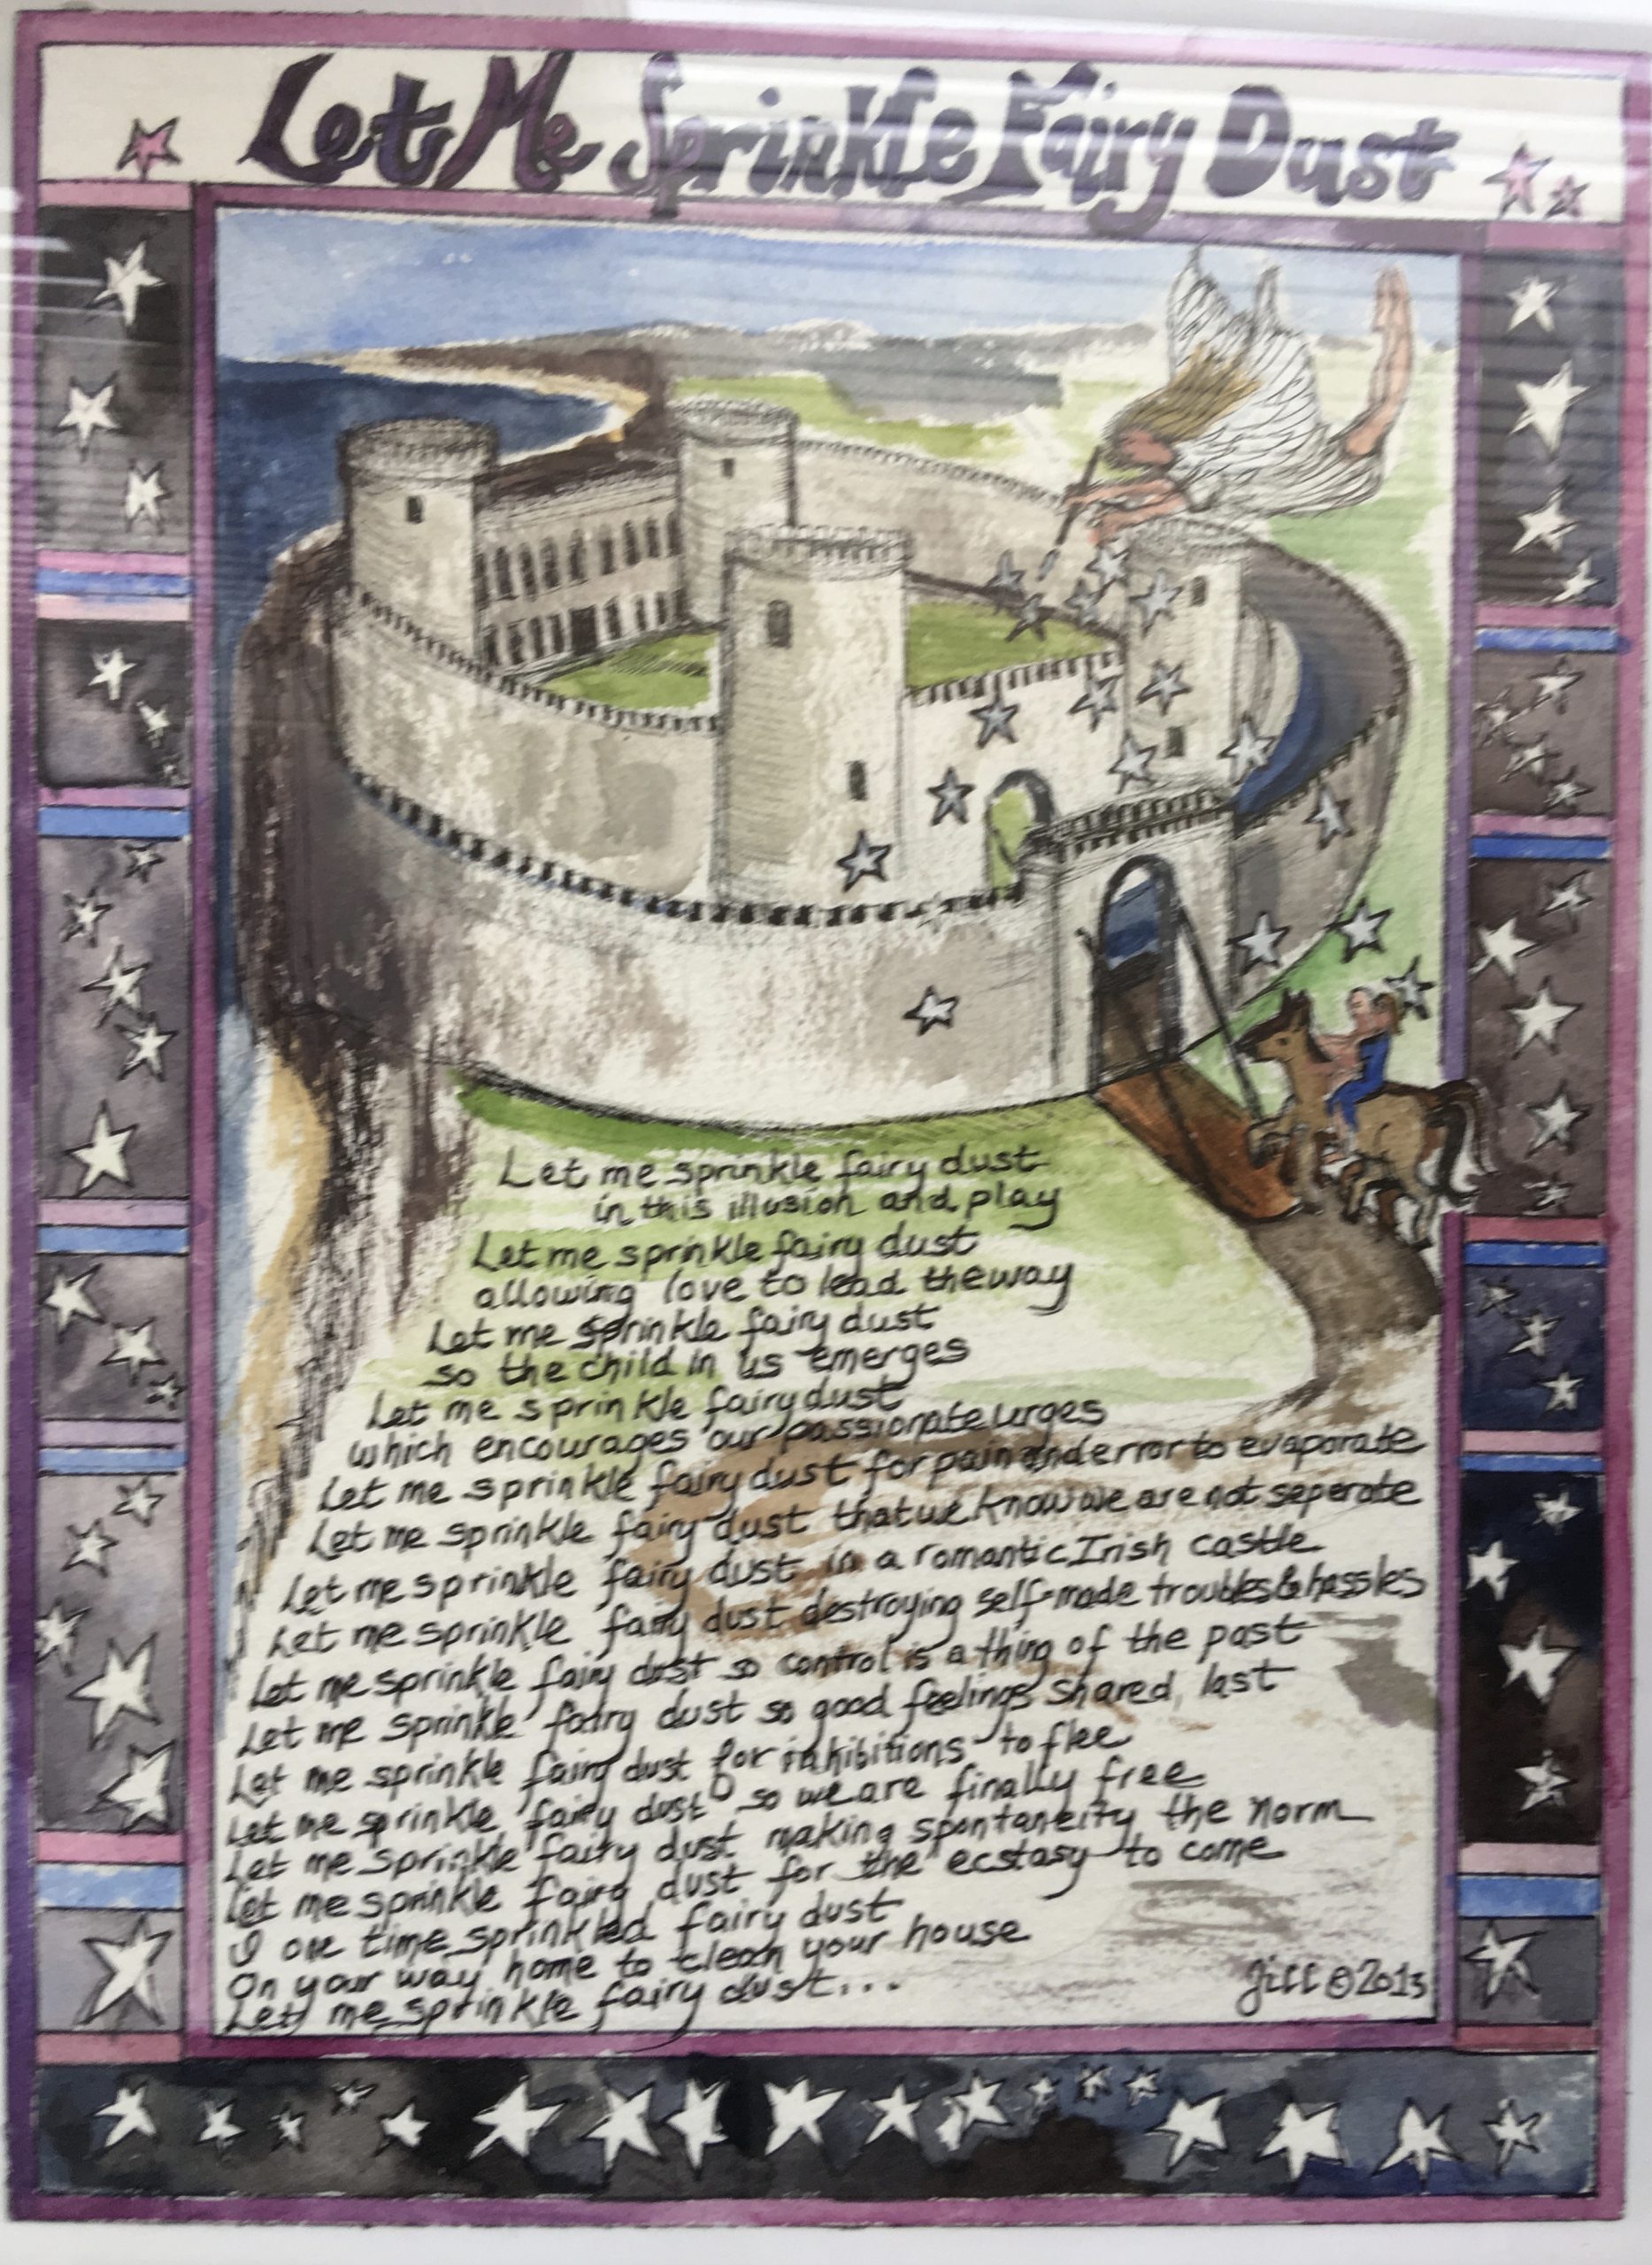 Let Me Sprinkle Fairy Dust
Let me sprinkle fairy dust
in this illusion and play
Let me sprinkle fairy dust
allowing love to lead the way
Let me sprinkle fairy dust
so the child in us emerges
Let me sprinkle fairy dust
which encourages our passionate urges
Let me sprinkle fairy dust for pain and error to evaporate
Let me sprinkle fairy dust that we know we are not seperate
Let me sprinkle fairy dust in a romantic Irish castle
Let me sprinkle fairy dust destroying self-made troubles & hassles
Let me sprinkle fairy dust so control is a thing of the past
Let me sprinkle fairy dust so good feelings shared, last
Let me sprinkle fairy dust for inhibitions to flee
Let me sprinkle fairy dust so we are finally free
Let me sprinkle fairy dust making spontaneity the norm
Let me sprinkle fairy dust for the ecstasy to come
I one time sprinkled fairy dust
On your way home to clean your house
Let me sprinkle fairy dust...
Jill © 2013